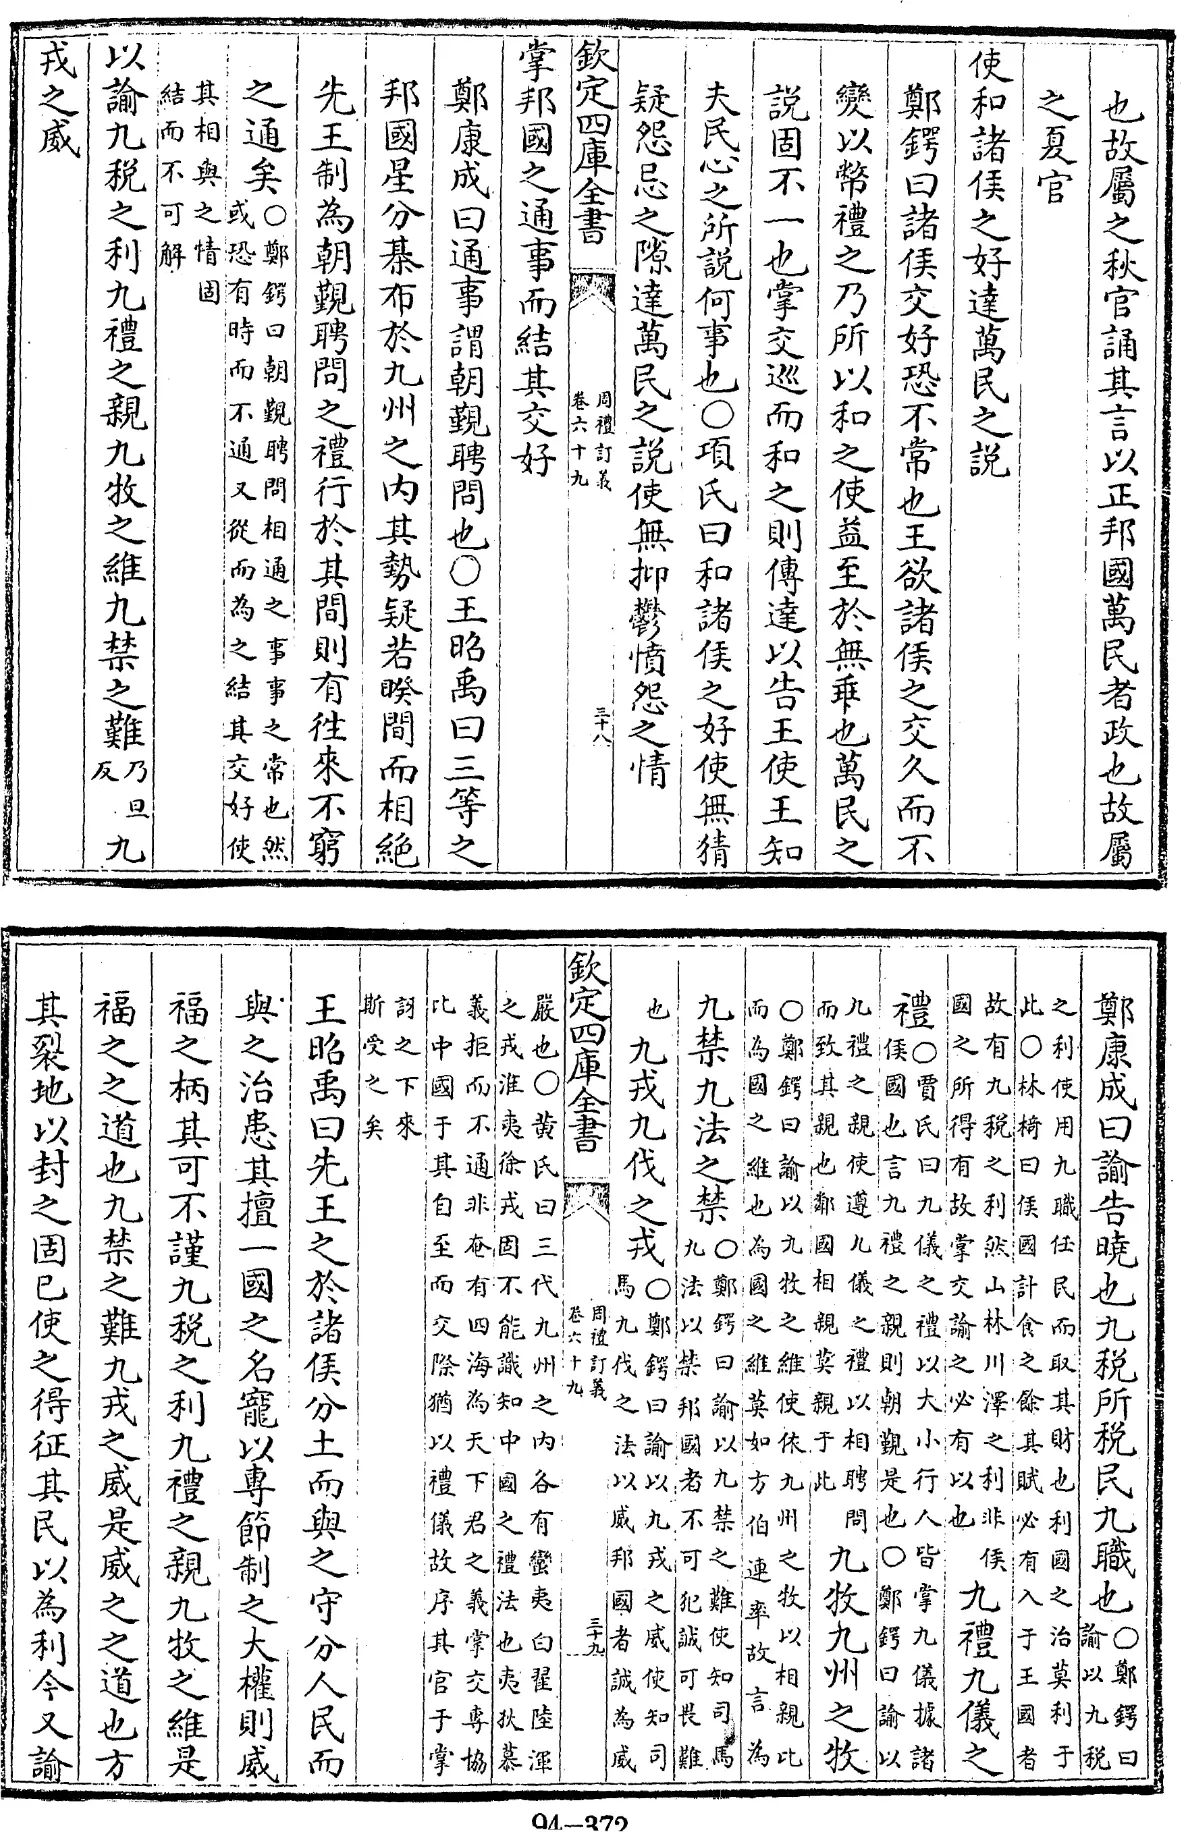 也故屬之秋官誦其言以正邦國萬民者政也故屬
之夏官
使和諸侯之好達萬民之説
鄭鍔曰諸侯交好恐不常也王欲諸侯之交久而不
變以幣禮之乃所以和之使益至於無乖也萬民之
説固不一也掌交巡而和之則傳達以告王使王知
夫民心之所説何事也〇項氏曰和諸侯之好使無猜
疑怨忌之隙達萬民之説使無抑鬱憤怨之情
欽定四庫全書
周禮訂義
卷六十九
三十八
掌邦國之通事而結其交好
鄭康成曰通事謂朝覲聘問也〇王昭禹曰三等之
邦國星分棊布於九州之内其勢疑若睽間而相絶
先王制為朝覲聘問之禮行於其間則有徃來不窮
之通矣〇鄭鍔曰朝覲聘問相通之事事之常也然
或恐有時而不通又從而為之結其交好使
其相與之情固
結而不可解
以諭九税之利九禮之親九牧之維九禁之難乃旦反九
戎之威
鄭康成曰諭告曉也九税所税民九職也〇鄭鍔曰
諭以九税
之利使用九職任民而取其財也利國之治莫利于
此〇林椅曰侯國計食之餘其賦必有入于王國者
故有九税之利然山林川澤之利非侯
國之所得有故掌交諭之必有以也
九禮九儀之
禮〇賈氏曰九儀之禮以大小行人皆掌九儀據諸
侯國也言九禮之親則朝覲是也〇鄭鍔曰諭以
九禮之親使遵九儀之禮以相聘問
而致其親也鄰國相親莫親于此
九牧九州之牧
〇鄭鍔曰諭以九牧之維使依九州之牧以相親比
而為國之維也為國之維莫如方伯連率故言為
九禁九法之禁〇鄭鍔曰諭以九禁之難使知司馬
九法以禁邦國者不可犯誠可畏難
也
九戎九伐之戎〇鄭鍔曰諭以九戎之威使知司
馬九伐之法以威邦國者誠為威
欽定四庫全書
周禮訂義
卷六十九
三十九
嚴也〇黄氏曰三代九州之内各有蠻夷白翟陸渾
之戎淮夷徐戎固不能識知中國之禮法也夷狄慕
義拒而不通非奄有四海為天下君之義掌交專協
比中國于其自至而交際猶以禮儀故序其官于掌
訝之下來
斯受之矣
王昭禹曰先王之於諸侯分土而與之守分人民而
與之治患其擅一國之名寵以專節制之大權則威
福之柄其可不謹九税之利九禮之親九牧之維是
福之之道也九禁之難九戎之威是威之之道也方
其裂地以封之固已使之得征其民以為利今又諭
94—372